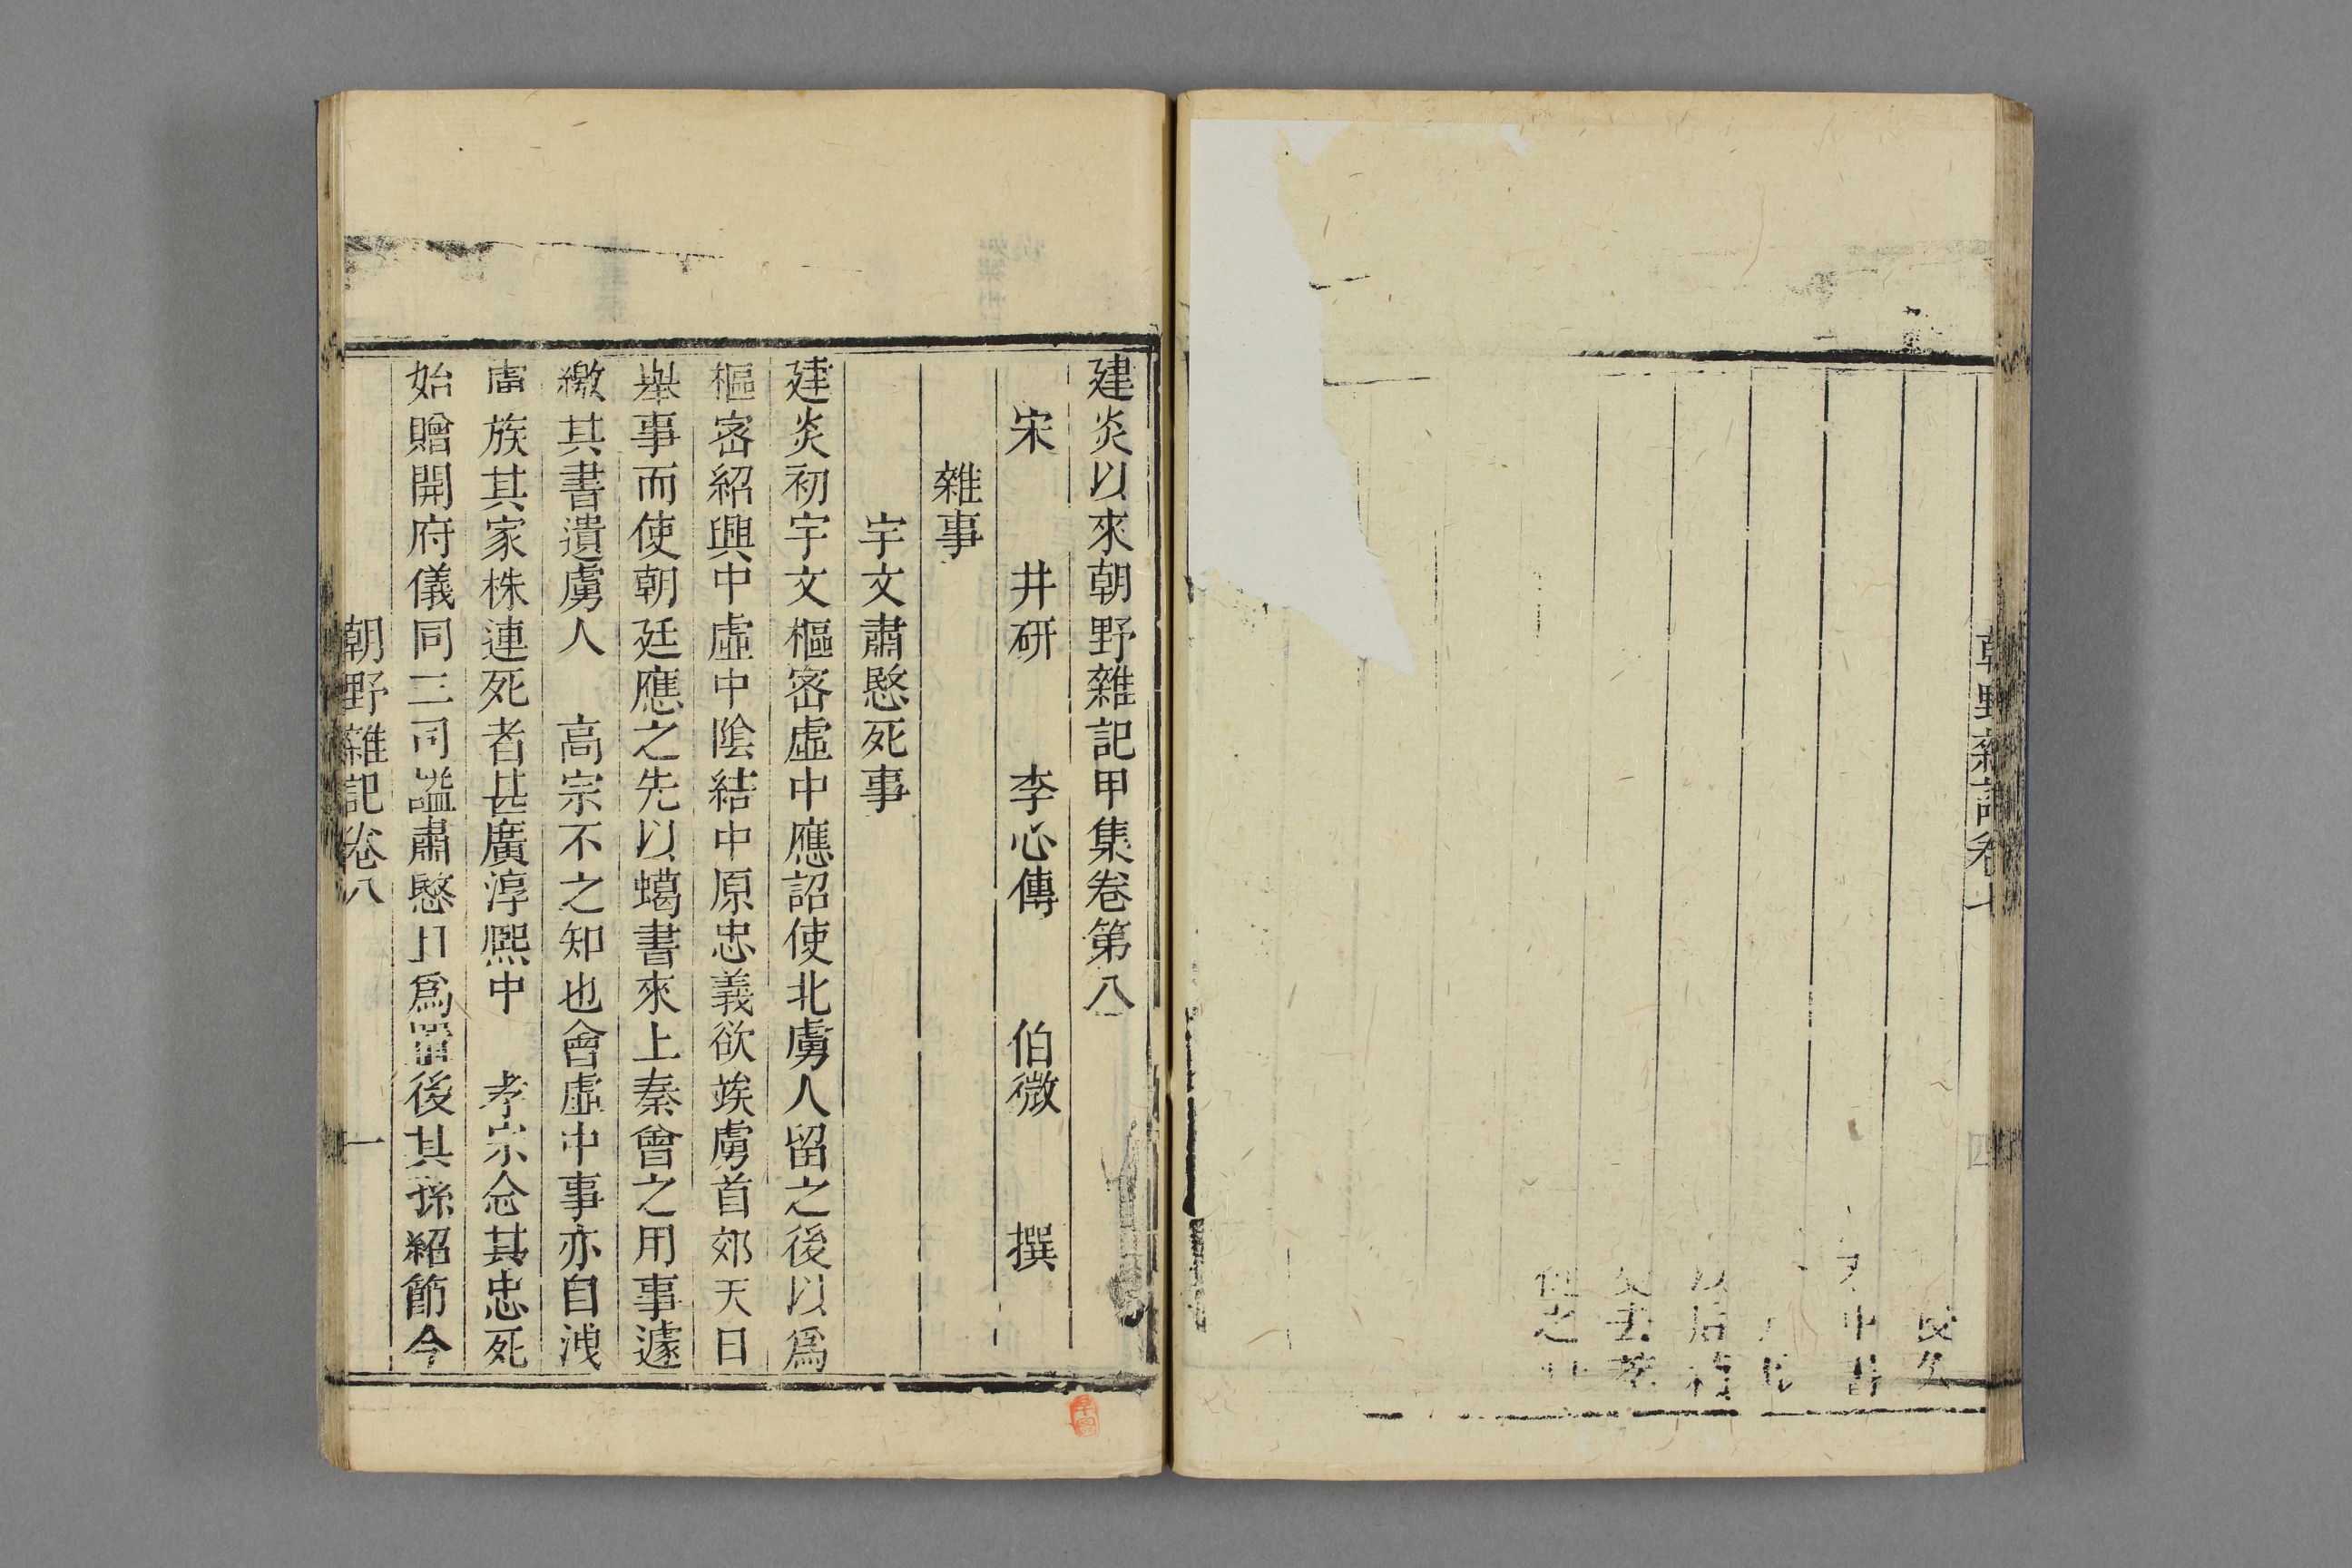 朝野雜記卷七
四
建炎以來朝野雜記甲集卷第八
宋　井研　李心傳　伯微　撰
雜事
宇文肅愍死事
建炎初宇文樞密虛中應詔使北虜人留之後以爲
樞密紹興中虛中陰結中原忠義欲竢虜首郊天日
舉事而使朝廷應之先以蠟書來上秦會之用事遽
繳其書遺虜人　高宗不之知也會虛中事亦自洩
虜族其家株連死者甚廣淳熙中　孝宗念其忠死
始贈開府儀同三司謚肅愍且爲置後其孫紹節今
朝野雜記卷八
一